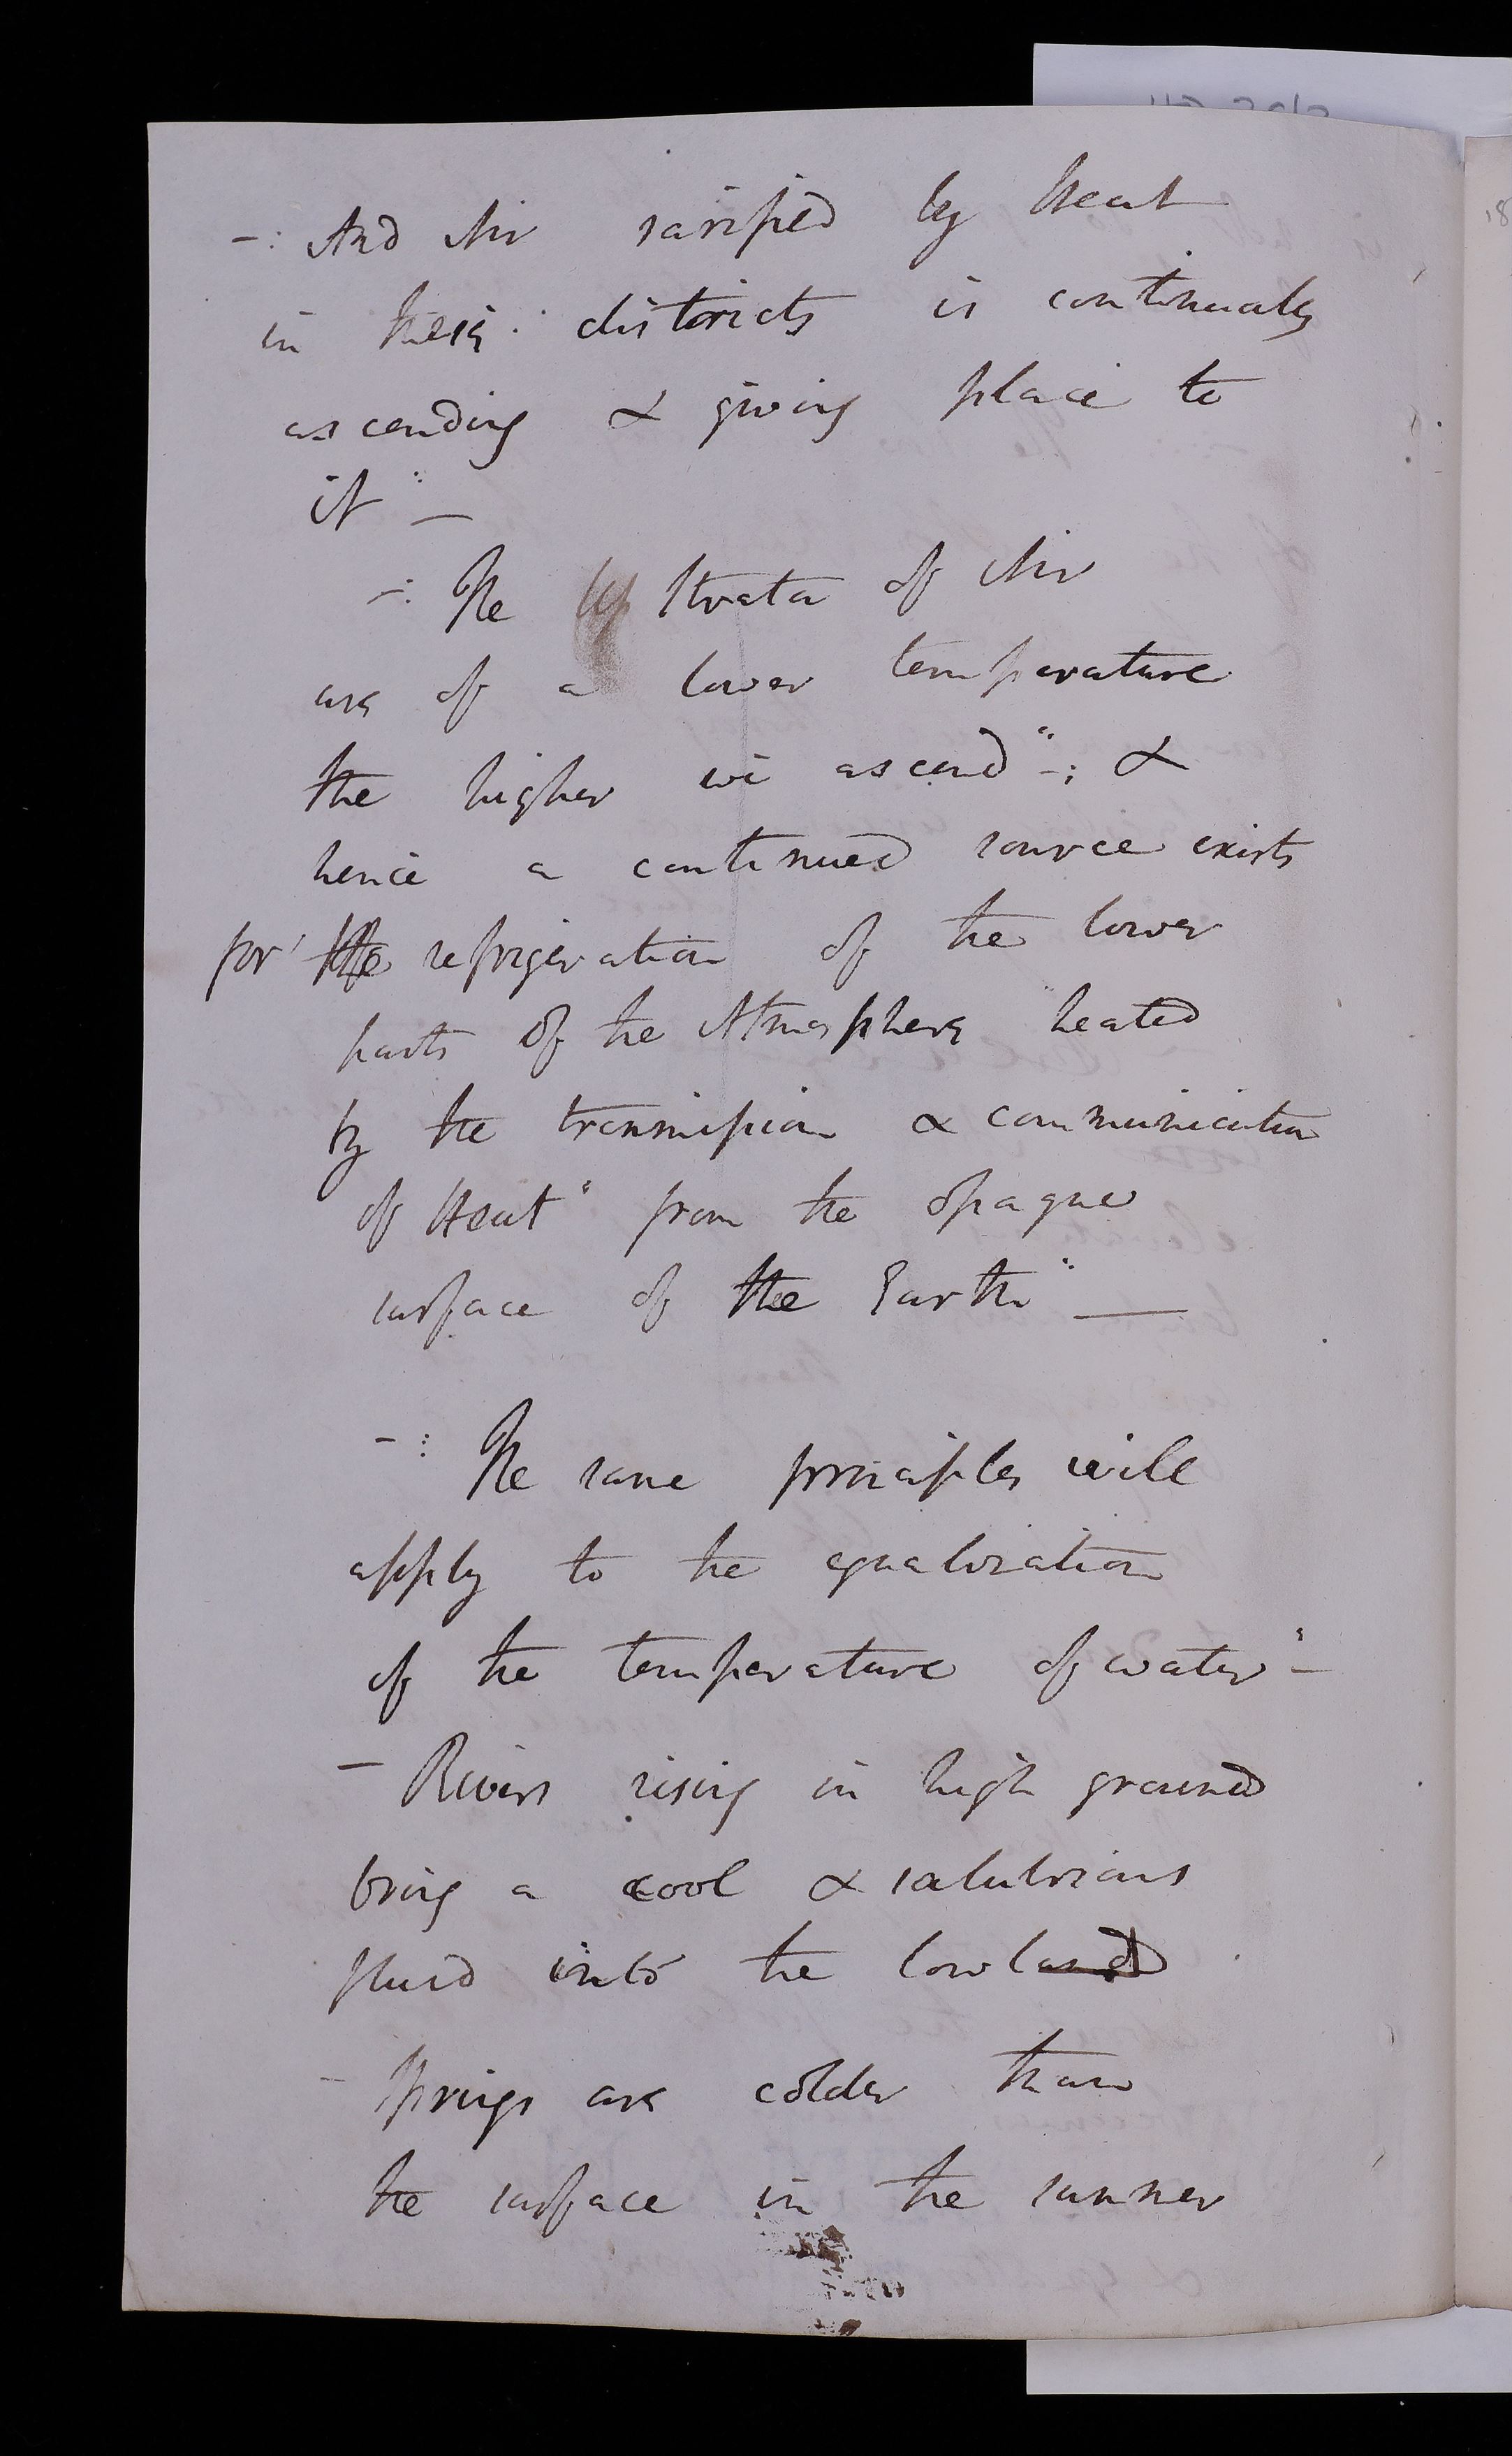 -: And Air rarified by Heat
in these districts is continually
ascending & giving place to
it" —
-: The Strata of Air
are of a lower temperature
the higher we ascend" -; &
hence a continued source exists
for the refrigeration of the lower
parts of the Atmosphere heated
by the transmission & communication
of Heat" from the opaque
surface of the Earth" —
-: The same principles will
apply to the equalization
of the temperature of water" -
- Rivers rising in high ground
bring a cool & salubrious
fluid into the lowland
- Springs are colder than
the surface in the summer